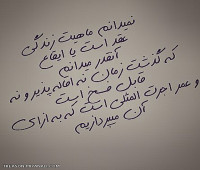 نمیدانم ماهیت زندگی
عقد است یا ایقاع
آنقدر میدانم
که گذشت زمان نه اقاله پذیر و نه
قابل فسخ است
و عمر اجرت المثلی است که به ازای
آن میپردازیم